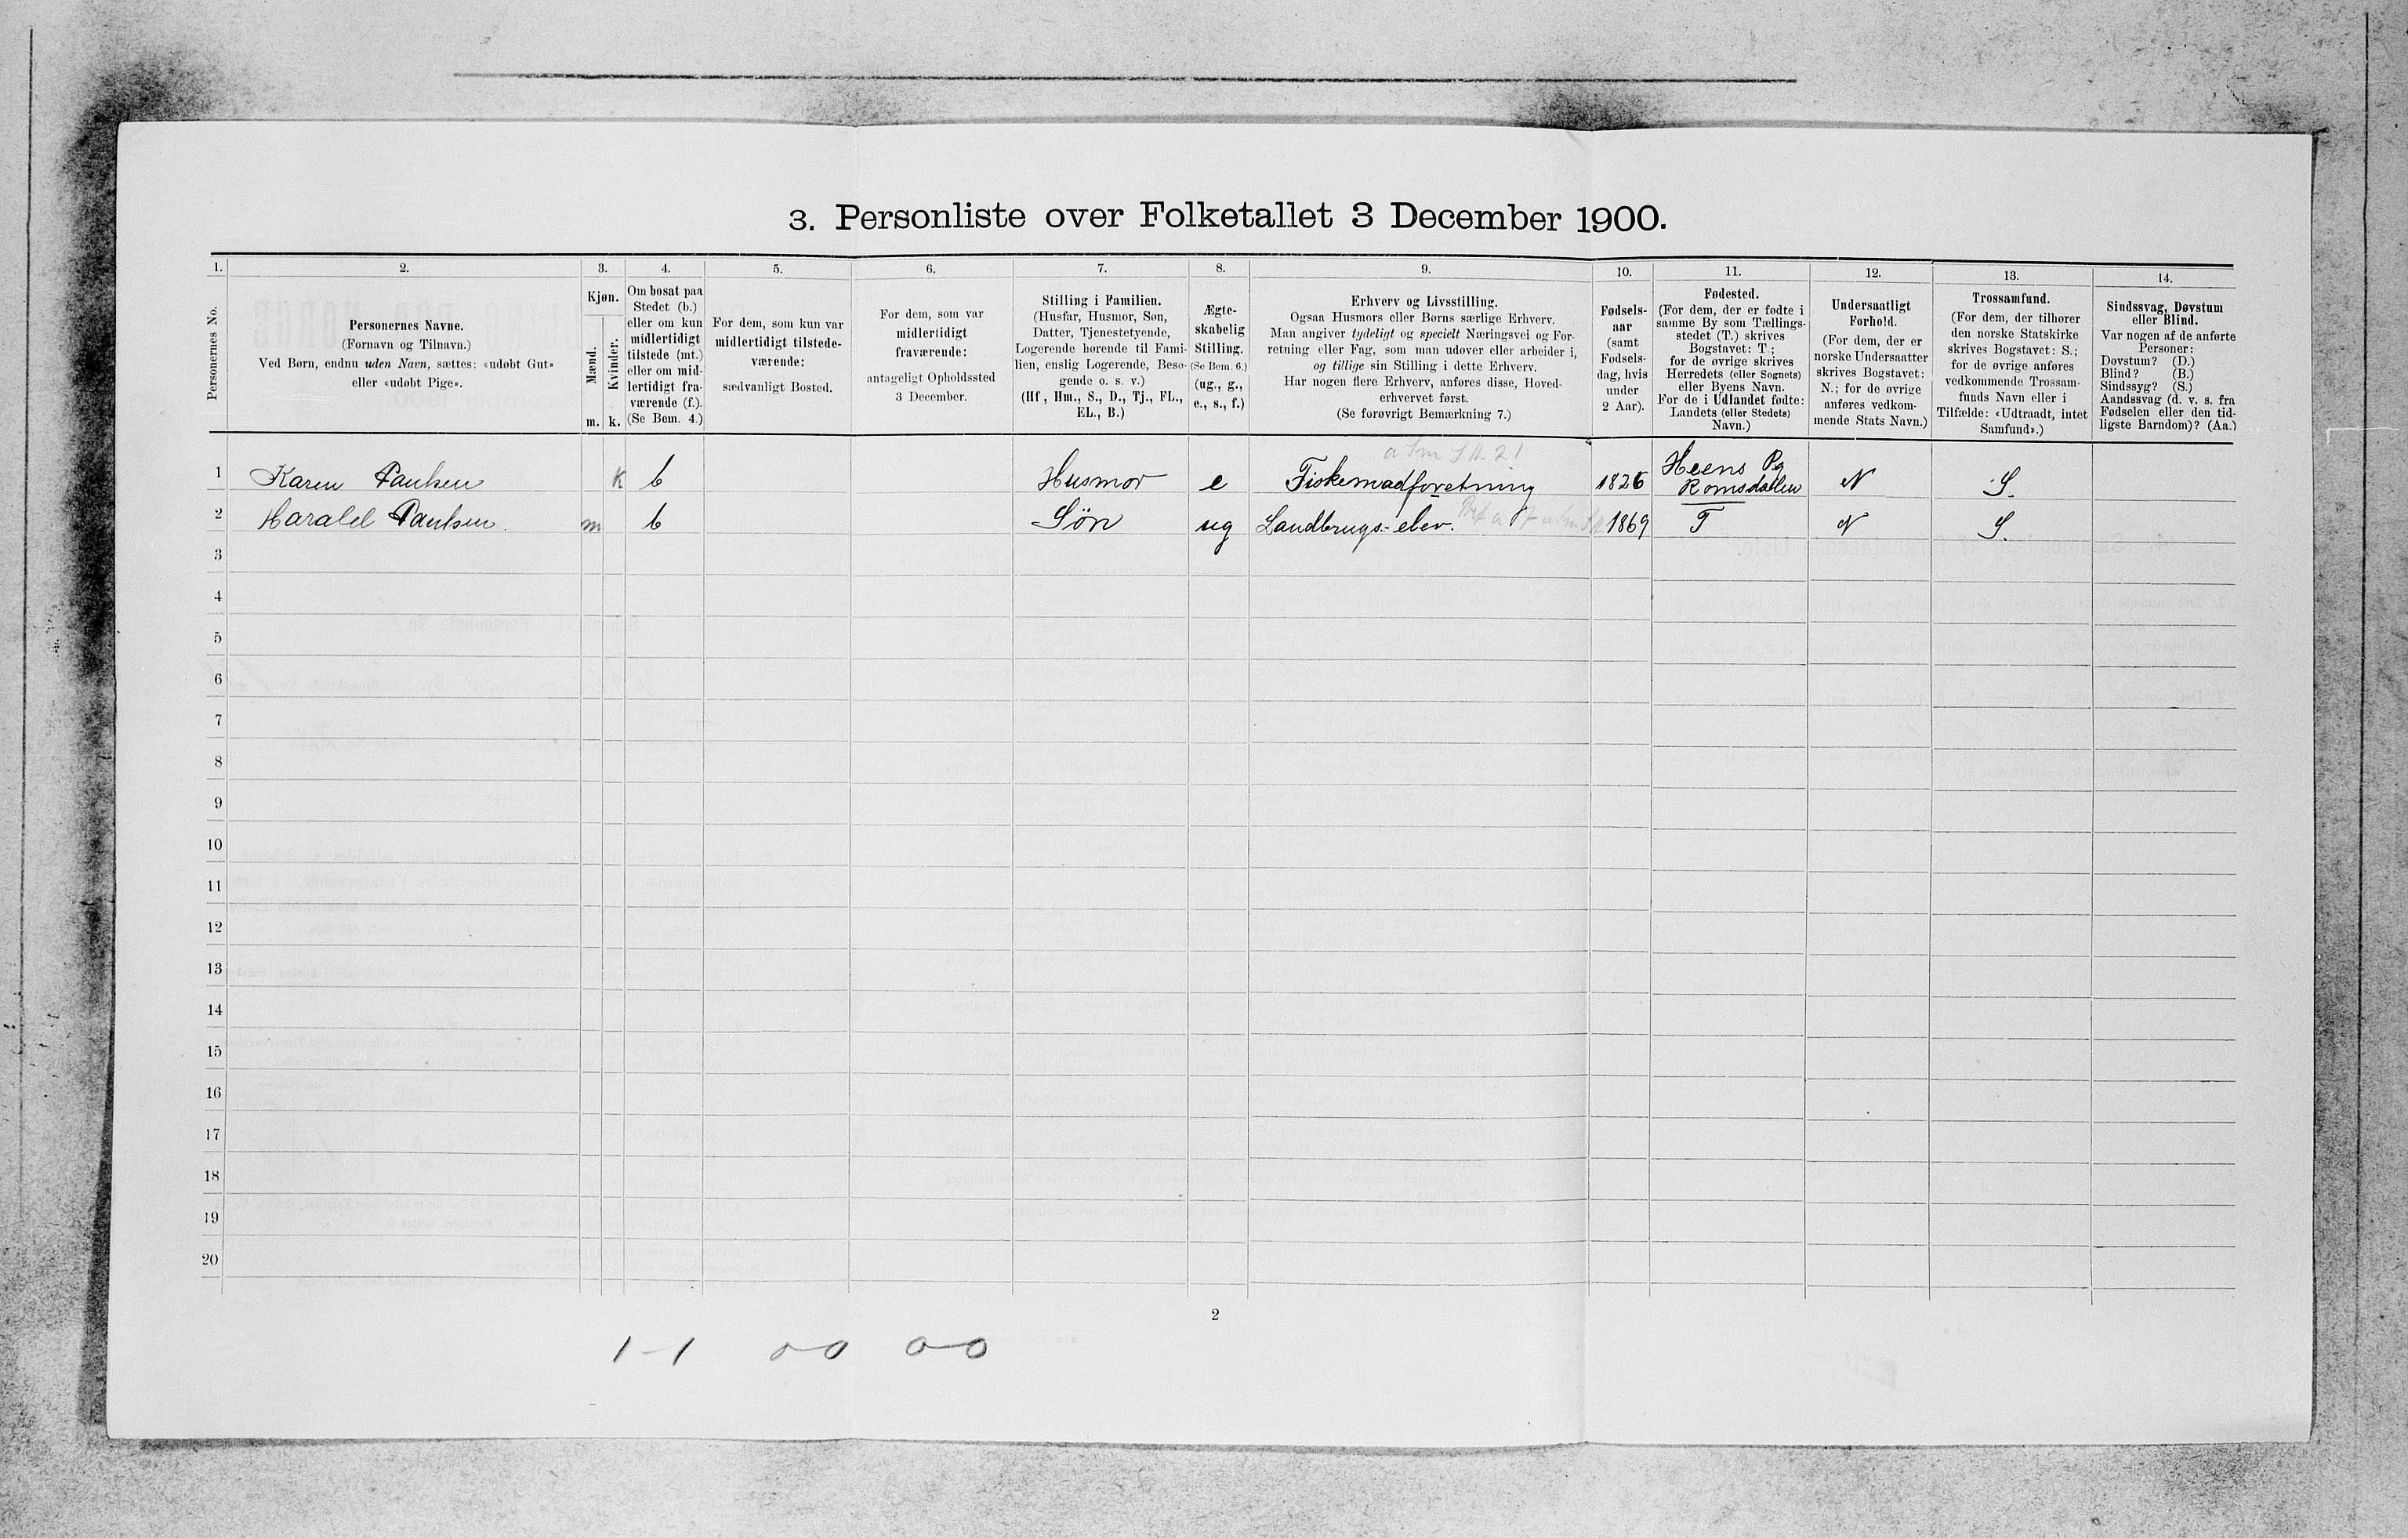 3. Personliste over Folketallet 3 December 1900.
1. 2. 3. 4. 5. 6. 7. 8. 9. 10. 11. 12. 13. 14.
Personernes No.
Personernes Navne.
(Fornavn og Tilnavn.)
Ved Børn, endnu uden Navn, sættes: «udøbt Gut»
eller «udøbt Pige».
Kjøn.
Mænd.
Kvinder.
m. k.
Om bosat paa
Stedet (b.)
eller om kun
midlertidigt
tilstede (mt.)
eller om mid-
lertidigt fra-
værende (f.).
(Se Bem. 4.)
For dem, som kun var
midlertidigt tilstede-
værende:
sædvanligt Bosted.
For dem, som var
midlertidigt
fraværende:
antageligt Opholdssted
3 December.
Stilling i Familien.
(Husfar, Husmor, Søn,
Datter, Tjenestetyende,
Logerende hørende til Fami-
lien, enslig Logerende, Besø-
gende o. s. v.)
(Hf., Hm., S., D., Tj., FL.,
EL., B.)
Ægte-
skabelig
Stilling.
(Se Bem. 6.)
(ug., g.,
e., s., f.)
Erhverv og Livsstilling.
Ogsaa Husmors eller Børns særlige Erhverv.
Man angiver tydeligt og specielt Næringsvei og For-
retning eller Fag, som man udøver eller arbeider i,
og tillige sin Stilling i dette Erhverv.
Har nogen flere Erhverv, anføres disse, Hoved-
erhvervet først.
(Se forøvrigt Bemærkning 7.)
Fødsels-
aar
(samt
Fødsels-
dag, hvis
under
2 Aar).
Fødested.
(For dem, der er fødte i
samme By som Tællings-
stedet (T.) skrives
Bogstavet: T.;
for de øvrige skrives
Herredets (eller Sognets)
eller Byens Navn.
For de i Udlandet fødte:
Landets (eller Stedets)
Navn.)
Undersaatligt
Forhold.
(For dem, der er
norske Undersaatter
skrives Bogstavet:
N.; for de øvrige
anføres vedkom-
mende Stats Navn.)
Trossamfund.
(For dem, der tilhører
den norske Statskirke
skrives Bogstavet: S.;
for de øvrige anføres
vedkommende Trossam-
funds Navn eller i
Tilfælde: «Udtraadt, intet
Samfund».)
Sindssvag, Døvstum
eller Blind.
Var nogen af de anførte
Personer:
Døvstum? (D.)
Blind? (B.)
Sindssyg? (S.)
Aandssvag (d. v. s. fra
Fødselen eller den tid-
ligste Barndom)? (Aa.)
1 Karen Paulsen k b Husmor e Fiskemadforetning 1826 Heens Pg Romsdalen N S.
2 Harald Paulsen. m b Søn ug Landbrugs-elev. 1869 T N S.
3
4
5
6
7
8
9
10
11
12
13
14
15
16
17
18
19
20
2
1-1 00 00